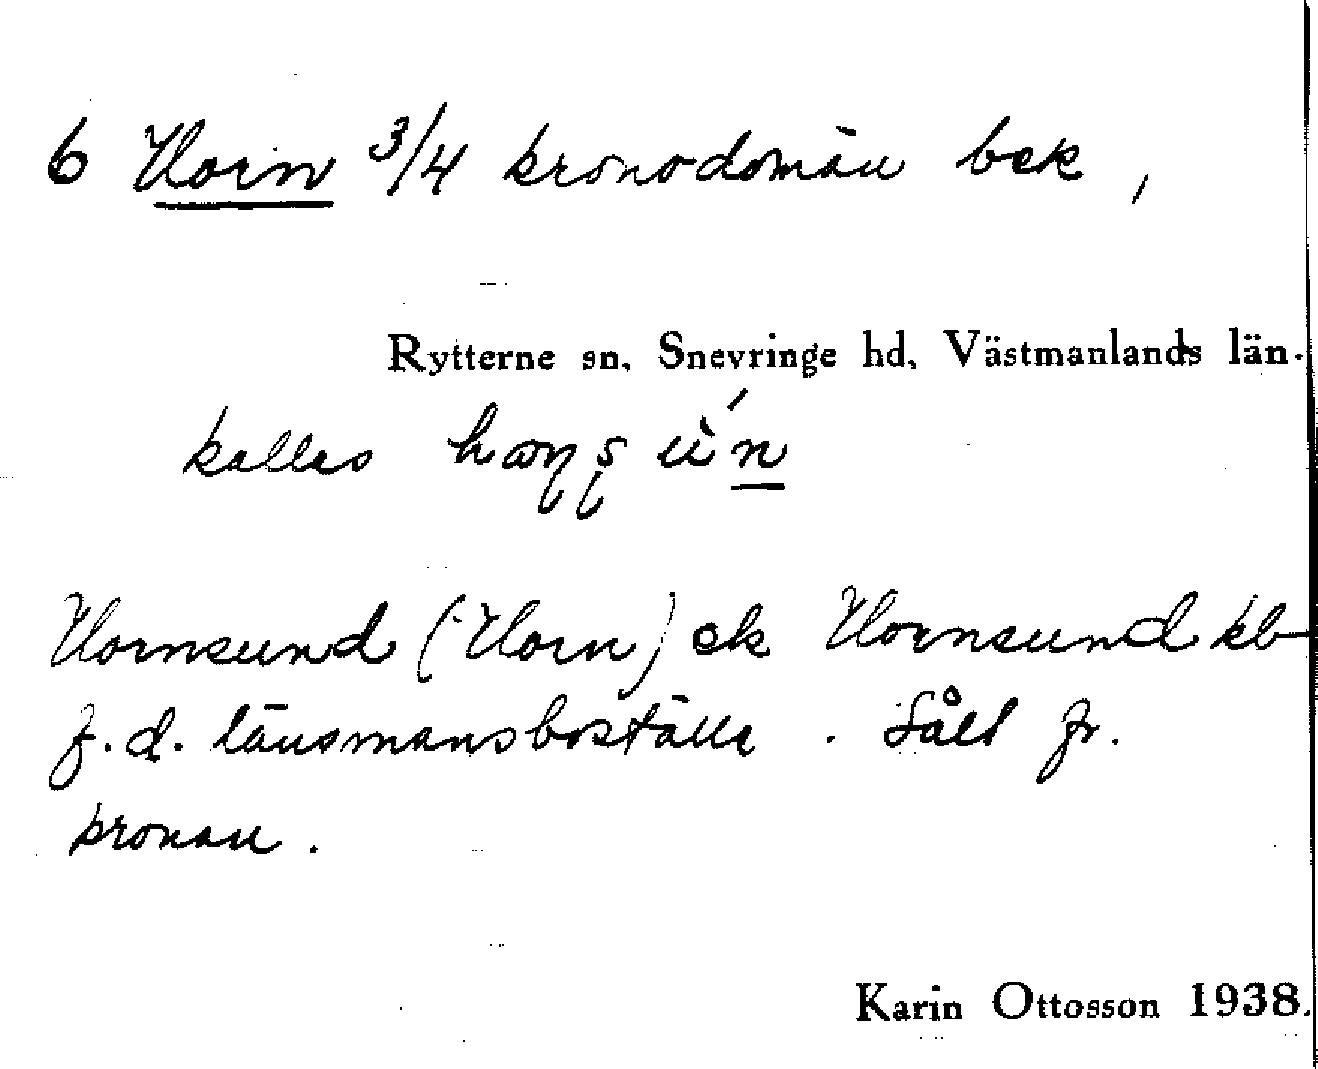 6 Horn 3/4 kronodomän bek,
Rytterne sn. Snevringe hd. Västmanlands län.
kallas
Hornsund (Horn) ek Hornsund kb
f.d. länsmansboställe. Såld fr.
kronan.
Karin Ottosson 1938.